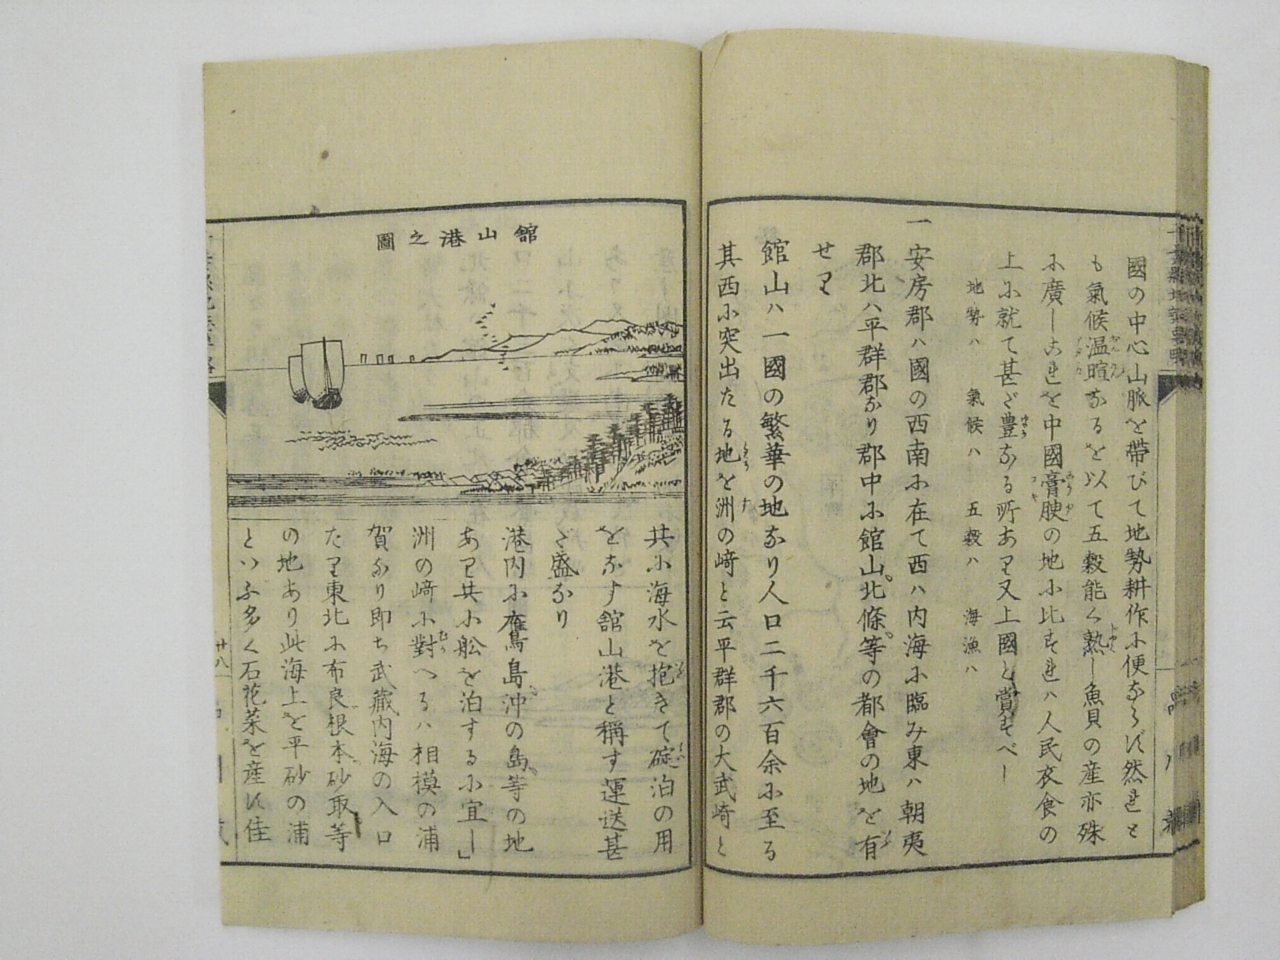 國の中心山脈を帶びて地勢耕作に便ならず然れと
も氣候温暄なるを以て五穀能く熟し魚貝の産亦殊
に廣しこれを中國膏腴の地に比すれハ人民衣食の
上に就て甚だ豊なる所あり又上國と賞すべし
地勢ハ 氣候ハ 五穀ハ 海漁ハ
一 安房郡ハ國の西南に在て西ハ内海に臨み東ハ朝夷
郡北ハ平群郡なり郡中に館山北條等の都會の地を有
せり
館山ハ一國の繁華の地なり人口二千六百余に至る
其西に突出たる地を洲の﨑と云平群郡の大武崎と
舘山港之圖
共に海水を抱きて碇泊の用
をなす舘山港と稱す運送甚
だ盛なり
港内に鷹島沖の島等の地
あり共に舩を泊するに宜し」
洲の﨑に對へるハ相模の浦
賀なり即ち武藏内海の入口
たり東北に布良根本砂取等
の地あり此海上を平砂の浦
といふ多く石花菜を産す佳
廿八